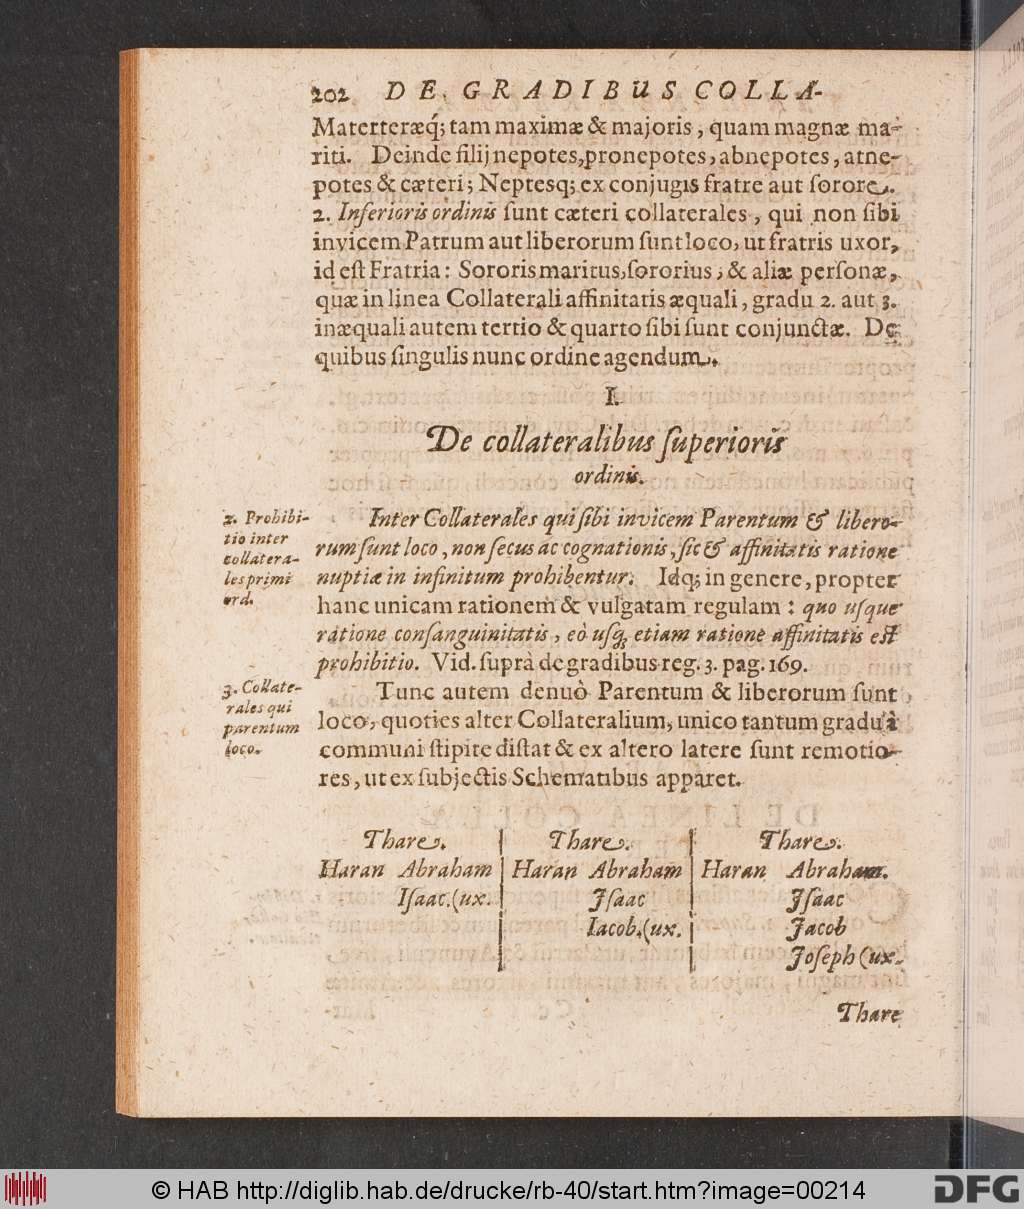 202 DE GRADIBUS COLLA-
Materteræq́; tam maximæ & majoris, quam magnæ ma-
riti. Deinde filij nepotes, pronepotes, abnepotes, atne-
potes & cæteri; Neptesq; ex conjugis fratre aut sorore.
2. Inferioris ordinis sunt cæteri collaterales, qui non sibi
invicem Patrum aut liberorum sunt loco, ut fratris uxor,
id est Fratria: Sororis maritus, sororius, & aliæ personæ,
quæ in linea Collaterali affinitatis æquali, gradu 2. aut 3.
inæquali autem tertio & quarto sibi sunt conjunctæ. De
quibus singulis nunc ordine agendum.
I.
De collateralibus superioris
ordinis.
2. Prohibi-
tio inter
collatera-
les primi
ord.
Inter Collaterales qui sibi invicem Parentum & libero-
rum sunt loco, non secus ac cognationis, sic & affinitatis ratione
nuptiæ in infinitum prohibentur. Idq; in genere, propter
hanc unicam rationem & vulgatam regulam: quo usque
ratione consanguinitatis, eò usq; etiam ratione affinitatis est
prohibitio. Vid. suprà de gradibus reg. 3. pag. 169.
3. Collate-
rales qui
parentum
loco.
Tunc autem denuò Parentum & liberorum sunt
loco, quoties alter Collateralium, unico tantum gradu à
communi stipite distat & ex altero latere sunt remotio-
res, ut ex subjectis Schematibus apparet.
Thare. | Thare. | Thare.
Haran Abraham | Haran Abraham | Haran Abraham.
Isaac. (ux. | Isaac | Isaac
| Iacob. (ux. | Jacob
| | Joseph (ux.
Thare
© HAB http://diglib.hab.de/drucke/rb-40/start.htm?image=00214
DFG